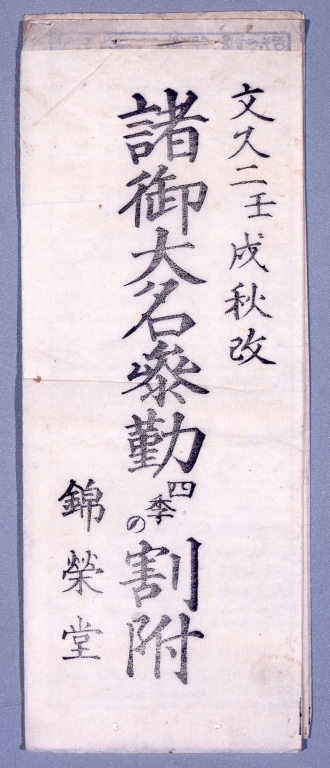 文久二壬戌秋改
諸御大名参勤四季の割附
錦榮堂